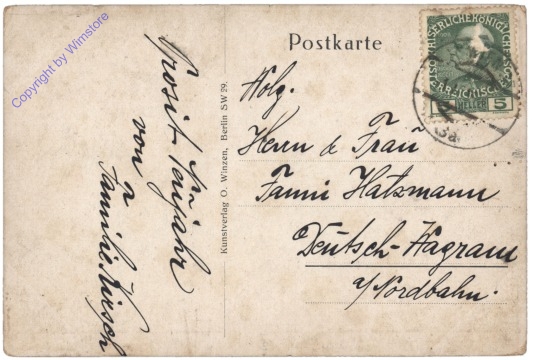 Postkarte
Kaiserliche Königliche
Österreichische
5 HELLER 5
Wolg.
Herrn & Frau
Fanni Hatzmann
Deutsch-Wagram
a/Nordbahn.
Prosit Neujahr
von
Familie Kirsch
Kunstverlag O. Winzen, Berlin SW 29.
Copyright by Wimstore